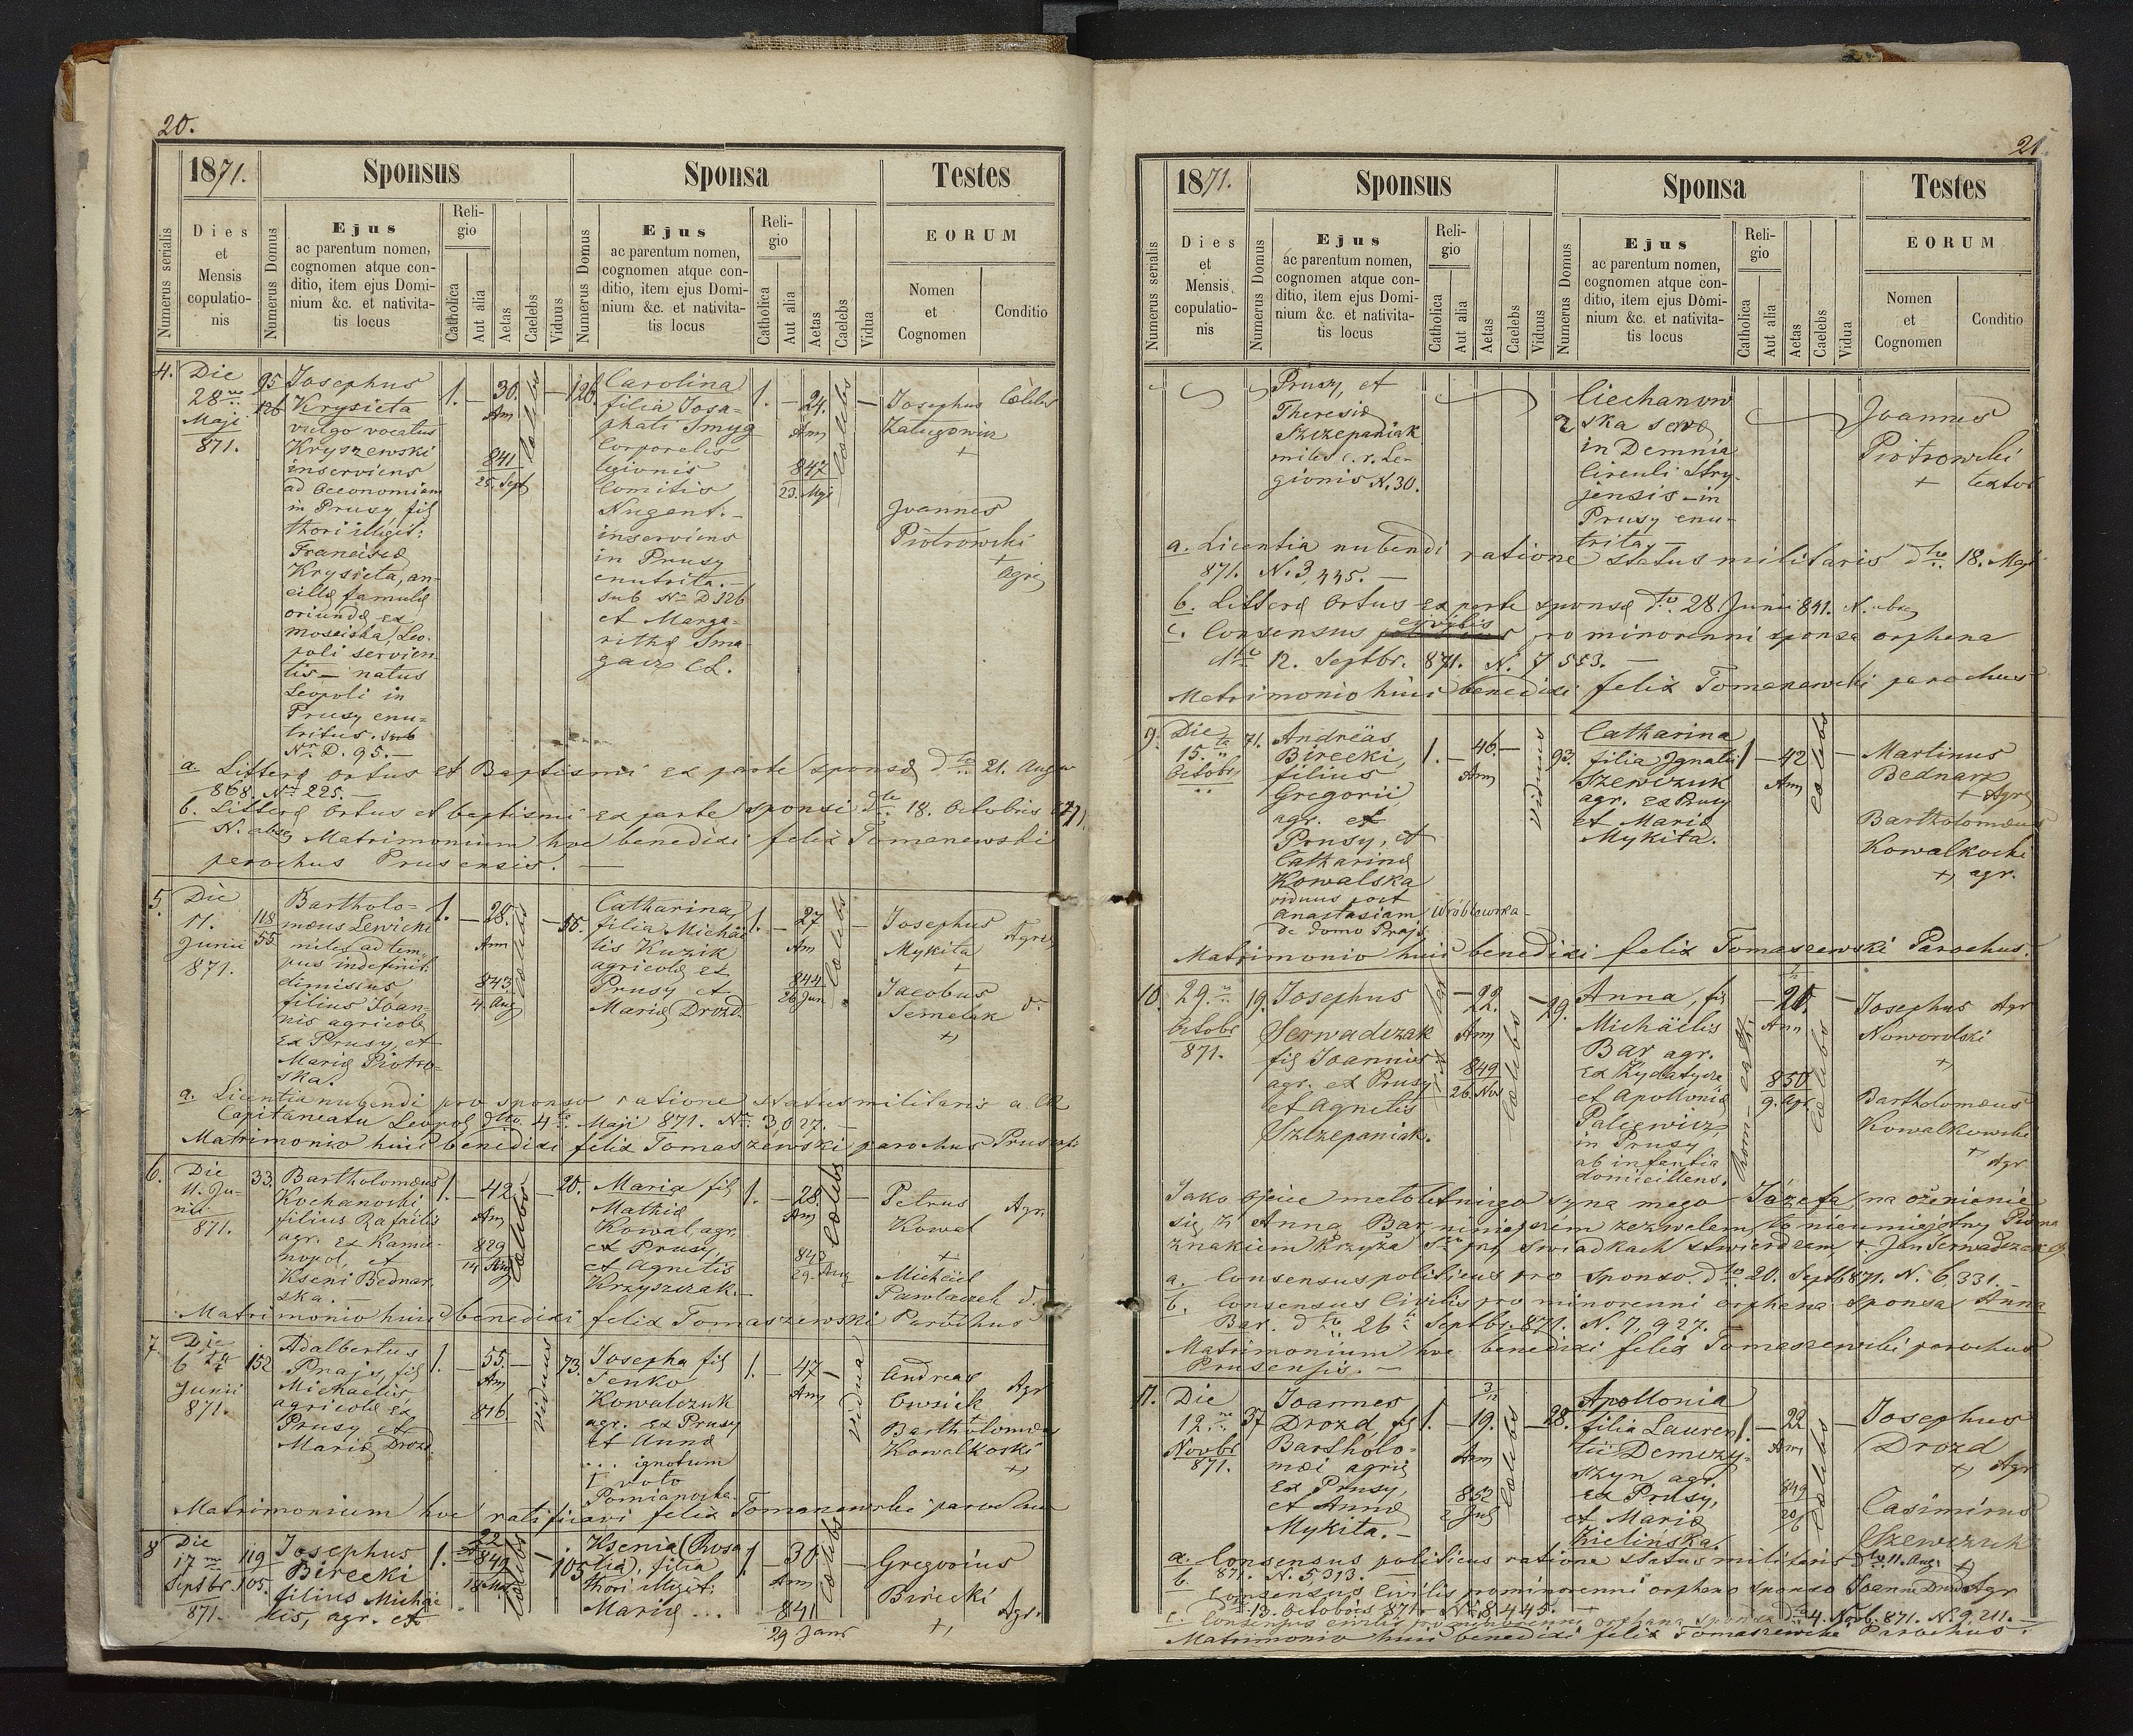 20.
1871.
Sponsus
Sponsa
Testes
Numerus serialis
Dies
et
Mensis
copulatio-
nis
Numerus Domus
Ejus
ac parentum nomen,
cognomen atque con-
ditio, item ejus Domi-
nium &c. et nativita-
tis locus
Reli-
gio
Catholica
Aut alia
Aetas
Caelebs
Viduus
Numerus Domus
Ejus
ac parentum nomen,
cognomen atque con-
ditio, item ejus Domi-
nium &c. et nativita-
tis locus
Reli-
gio
Catholica
Aut alia
Aetas
Caelebs
Vidua
EORUM
Nomen
et
Cognomen
Conditio
4.
Die
28
Maji
871.
95
126
Josephus
Krysieta
vulgo vocatus
Kryszewski
inserviens
ad Oeconomiam
in Prusy, fil
thori illegit:
Krysieta, an-
cillae famulae
oriundae, ex
Mosciska, Leo-
poli servien
tis – natus
Leopoli in
Prusy enu-
tritus. sub
Nr. D. 95. –
1.
–
30.
Ann
841
25. Sept
Coelebs
–
126.
Carolina
filia Josa-
phati Smyg
Corporelis
legionis
Comitis
Nugent. –
inserviens
in Prusy
enutrita. –
sub Nr D 126
et Marga-
rithae
1.
–
24.
Ann
847
23. Maji
Coelebs
–
Josephus
+
Coelebs
Joannes
Piotrowski
+
agr
a. Litterae ortus et Baptismi ex parte sponsae dto 21. August
868. Nr. 225. –
b. Litterae Ortus et baptismi ex parte sponsi dto 18. Octobris 871.
N. absq Matrimonium hoc benedixi felix Tomaszewski
parochus Prusensis. –
5.
Die
11.
Junii
871.
118
55
Bartholo-
maeus Lewicki
miles ad tem-
pus indefinit.
dimissus,
filius Joan-
nis agricolae
ex Prusy, et
Mariae Piotro-
ska.
1.
–
28.
Ann
843
4. Aug
Coelebs
–
55.
Catharina,
filia Michäe
lis Kuzik
agricolae ex
Prusy et
Mariae Drozd.
1.
–
27
Ann
844
26 Jun
Coelebs
Josephus
Mykita
+
Agr
Jacobus
Semelak
+
d.
a. Licentia nubendi pro sponso ratione status militaris a. CR
Capitaneatu Leopol dto. 4 Maji 871. Nr. 3,027. –
Matrimonio huic benedixi felix Tomaszewski parochus
6.
Die
11. Ju-
nii
871.
33.
Bartholomaeus
Kochanoski
filius Rafaelis
agr. ex Kamie-
nopol, et
Kseni Bednar-
ska. –
1.
–
42
Ann
829
14 Aug
Coelebs
–
20.
Maria fil
Mathiae
Kowal, agr.
ex Prusy,
et Agnetis
Krzyszczak. –
1.
–
28.
Ann
843
29. Aug
Coelebs
–
Petrus
Kowal
+
Agr.
Michäel
Pawlaczek
d.
Matrimonio huic benedixi felix Tomaszewski Parochus
7.
Die
6 ta
Junii
871.
152
Adalbertus
Prajs, fil
Michaelis,
agricolae ex
Prusy et
Mariae Drozd.
1.
–
55.
Ann
816
Viduus
–
73.
Josepha fil
Senko
Kowalczuk
agr. ex Prusy
et Annae
... ignotum
I voto
1.
–
47
Ann
Vidua
Andreas
Owsiak
+
Agr
Bartholomaeus
Kowalkoski
+
Matrimonium hoc ratificavi felix Tomaszewski parochus
8
Die
17 ma
Septbr.
871.
119
105.
Josephus
Birecki
filius Michäe
lis, agr. ex
1.
22
849
Coelebs
–
105
Ksenia (Rosa
lia), filia
thori illegit:
Mariae ...
1
–
30
Ann
841
29 Janr
Coelebs
–
Gregorius
Birecki
+
Agr.
21.
1871.
Sponsus
Sponsa
Testes
Numerus serialis
Dies
et
Mensis
copulatio-
nis
Numerus Domus
Ejus
ac parentum nomen,
cognomen atque con-
ditio, item ejus Domi-
nium &c. et nativita-
tis locus
Reli-
gio
Catholica
Aut alia
Aetas
Caelebs
Viduus
Numerus Domus
Ejus
ac parentum nomen,
cognomen atque con-
ditio, item ejus Domi-
nium &c. et nativita-
tis locus
Reli-
gio
Catholica
Aut alia
Aetas
Caelebs
Vidua
EORUM
Nomen
et
Cognomen
Conditio
Prusy, et
Theresiae
Szczepaniak
miles c. r. Le-
gionis N. 30.
Ciechanow
ska
in Demnia
Circuli Stry-
jensis – in
Prusy enu-
trita. –
Joannes
Piotrowski
+
textor
a. Licentia nubendi ratione status militaris dto 18. Maji
871. N. 3,445. –
b. Litterae Ortus ex parte sponsae dto 28 Junii 841. N. absq
c. Consensus civilis pro minorenni sponsa orphana
dto 12. Septbr. 871. N. 7553. –
Matrimonio huic benedixi felix Tomaszewski parochus
9.
Die
15. ta
Octobr
71.
Andreäs
Birecki,
filius
Gregorii
agr. ex
Prusy, et
Catharinae
Kowalska
viduus post
Anastasiam Wróblewska –
de domo Prajs
1.
–
46
Ann
Viduus
93.
Catharina
filia Ignatii
Szewczuk
agr. ex Prusy
et Mariae
Mykita.
1
–
42
Ann
Coelebs
–
Martinus
Bednarz
+ Agr
Bartholomaeus
Kowalkoski
+ agr.
Matrimonio huic benedixi felix Tomaszewski Parochus.
10.
29.
Octobr
871.
19.
Josephus
Serwadczak
fil Joannis
agr. ex Prusy
et Agnetis
Szczepaniak.
–
22.
Ann
849
26. Nov
Coelebs
–
29.
Anna, fil
Michäelis
Bar agr.
ex Zydatycze
et Apolloniae
Paliewicz,
in Prusy
ab infantia
domicillens.
–
Ann
850
9. Apr.
Coelebs
–
Josephus
Noworolski
+
Agr
Bartholomaeus
Kowalkowski
+
Agr
Jako ojciec małoletniego syna mego Józefa na ożenienie
się z Anną Bar, niniejszem zezwalam, co nieumiejętny Pisma
znakiem krzyża Sgo przy świadkach stwierdzam + Jan Serwadczak
a. Consensus politicus pro sponso dto 20. Septb 871. N. 6,331. –
b. Consensus Civilis pro minorenni orphana sponsa Anna
Bar. dto 26 Septbr. 871. N. 7,927. –
Matrimonium hoc benedixi felix Tomaszewski parochus
Prusensis. –
11.
Die
12.
Novbr
871.
37
Joannes
Drozd fil
Bartholo-
maei agric
ex Prusy,
et Annae
Mykita. –
1.
–
19.
Ann
852
2 Jul
Coelebs
–
28.
Apollonia
filia Lauren
tii Demczy-
szyn agr.
ex Prusy,
et Mariae
Zielinska.
1.
–
22
Ann
849
Coelebs
–
Josephus
Drozd
+
Agr
Casimirus
Szewczuk
+
Agr
a. Consensus politicus ratione status militaris dto 11. Aug.
871. N. 5,313. –
b. Consensus Civilis pro minorenni orphano sponso Joanne Drozd
13. Octobris 871. Nr. 8,445. –
c. Consensus civilis pro minorenni orphana sponsa dto 4. Novb. 871. N. 9,211. –
Matrimonio huic benedixi felix Tomaszewski Parochus.